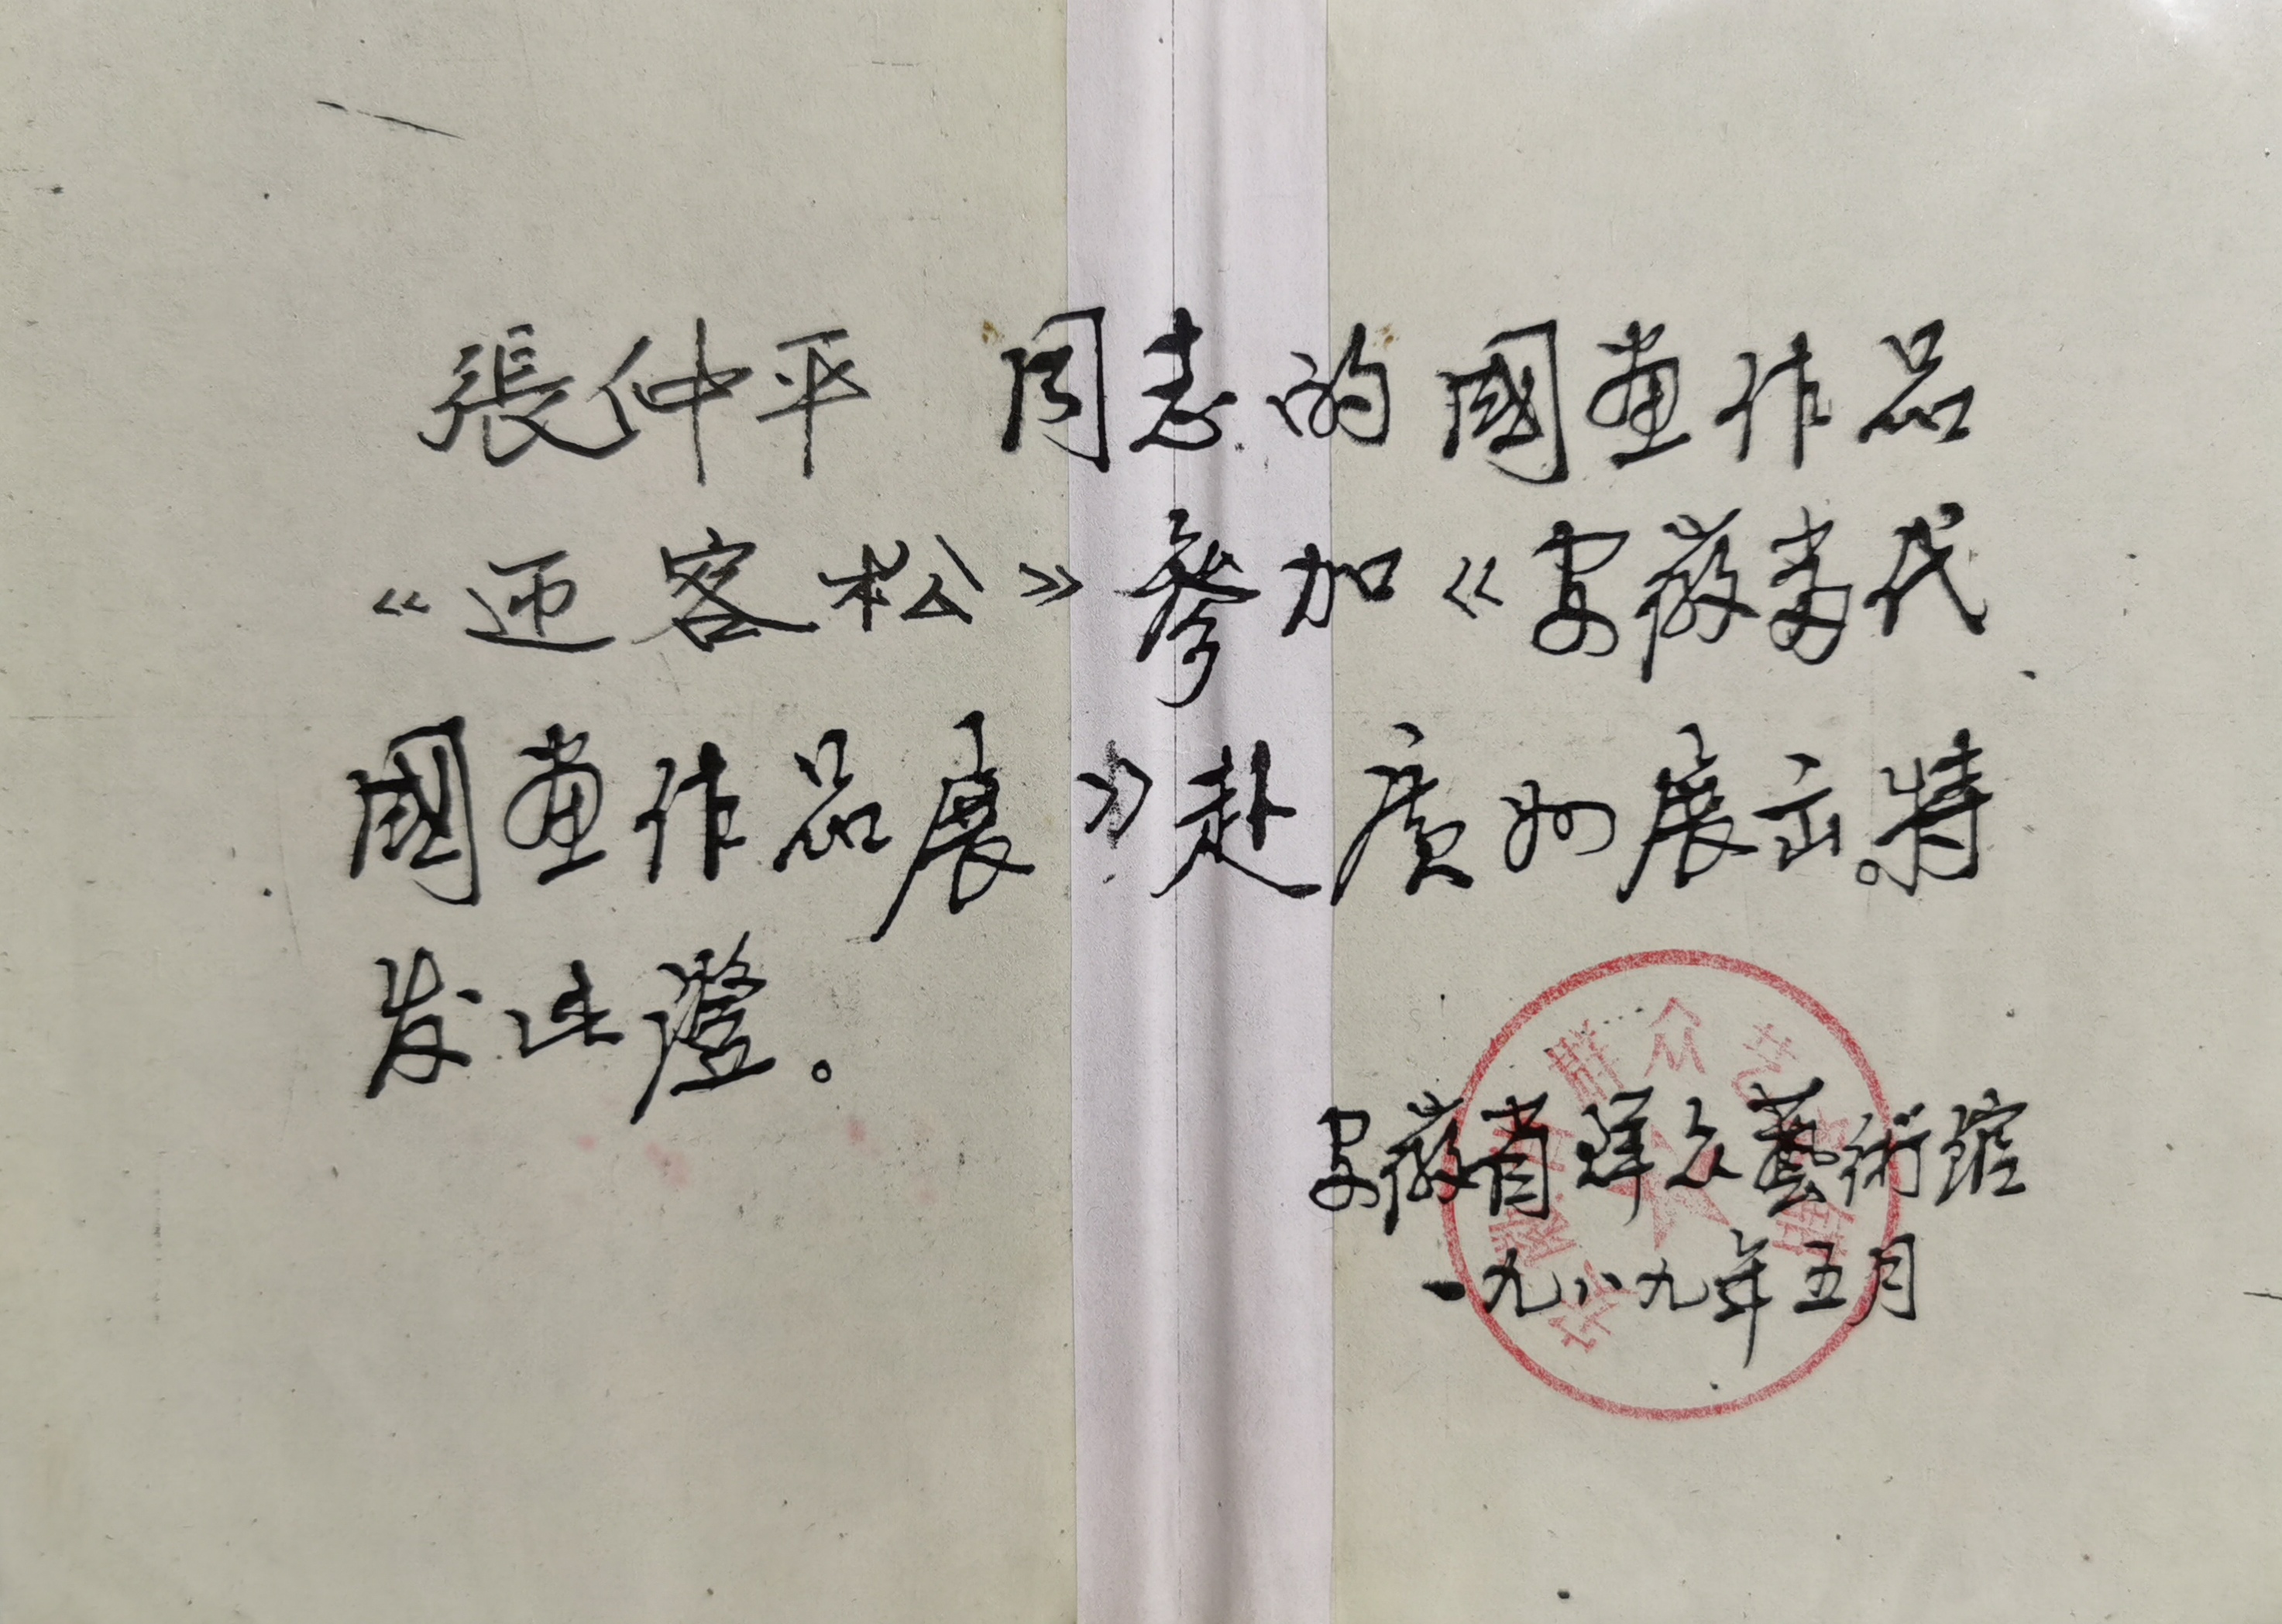 張仲平 同志的國畫作品
《迎客松》參加《安徽当代
國畫作品展》赴廣州展出。特
发此證。
安徽省群众藝術馆
一九八九年五月
安徽省群众艺术馆